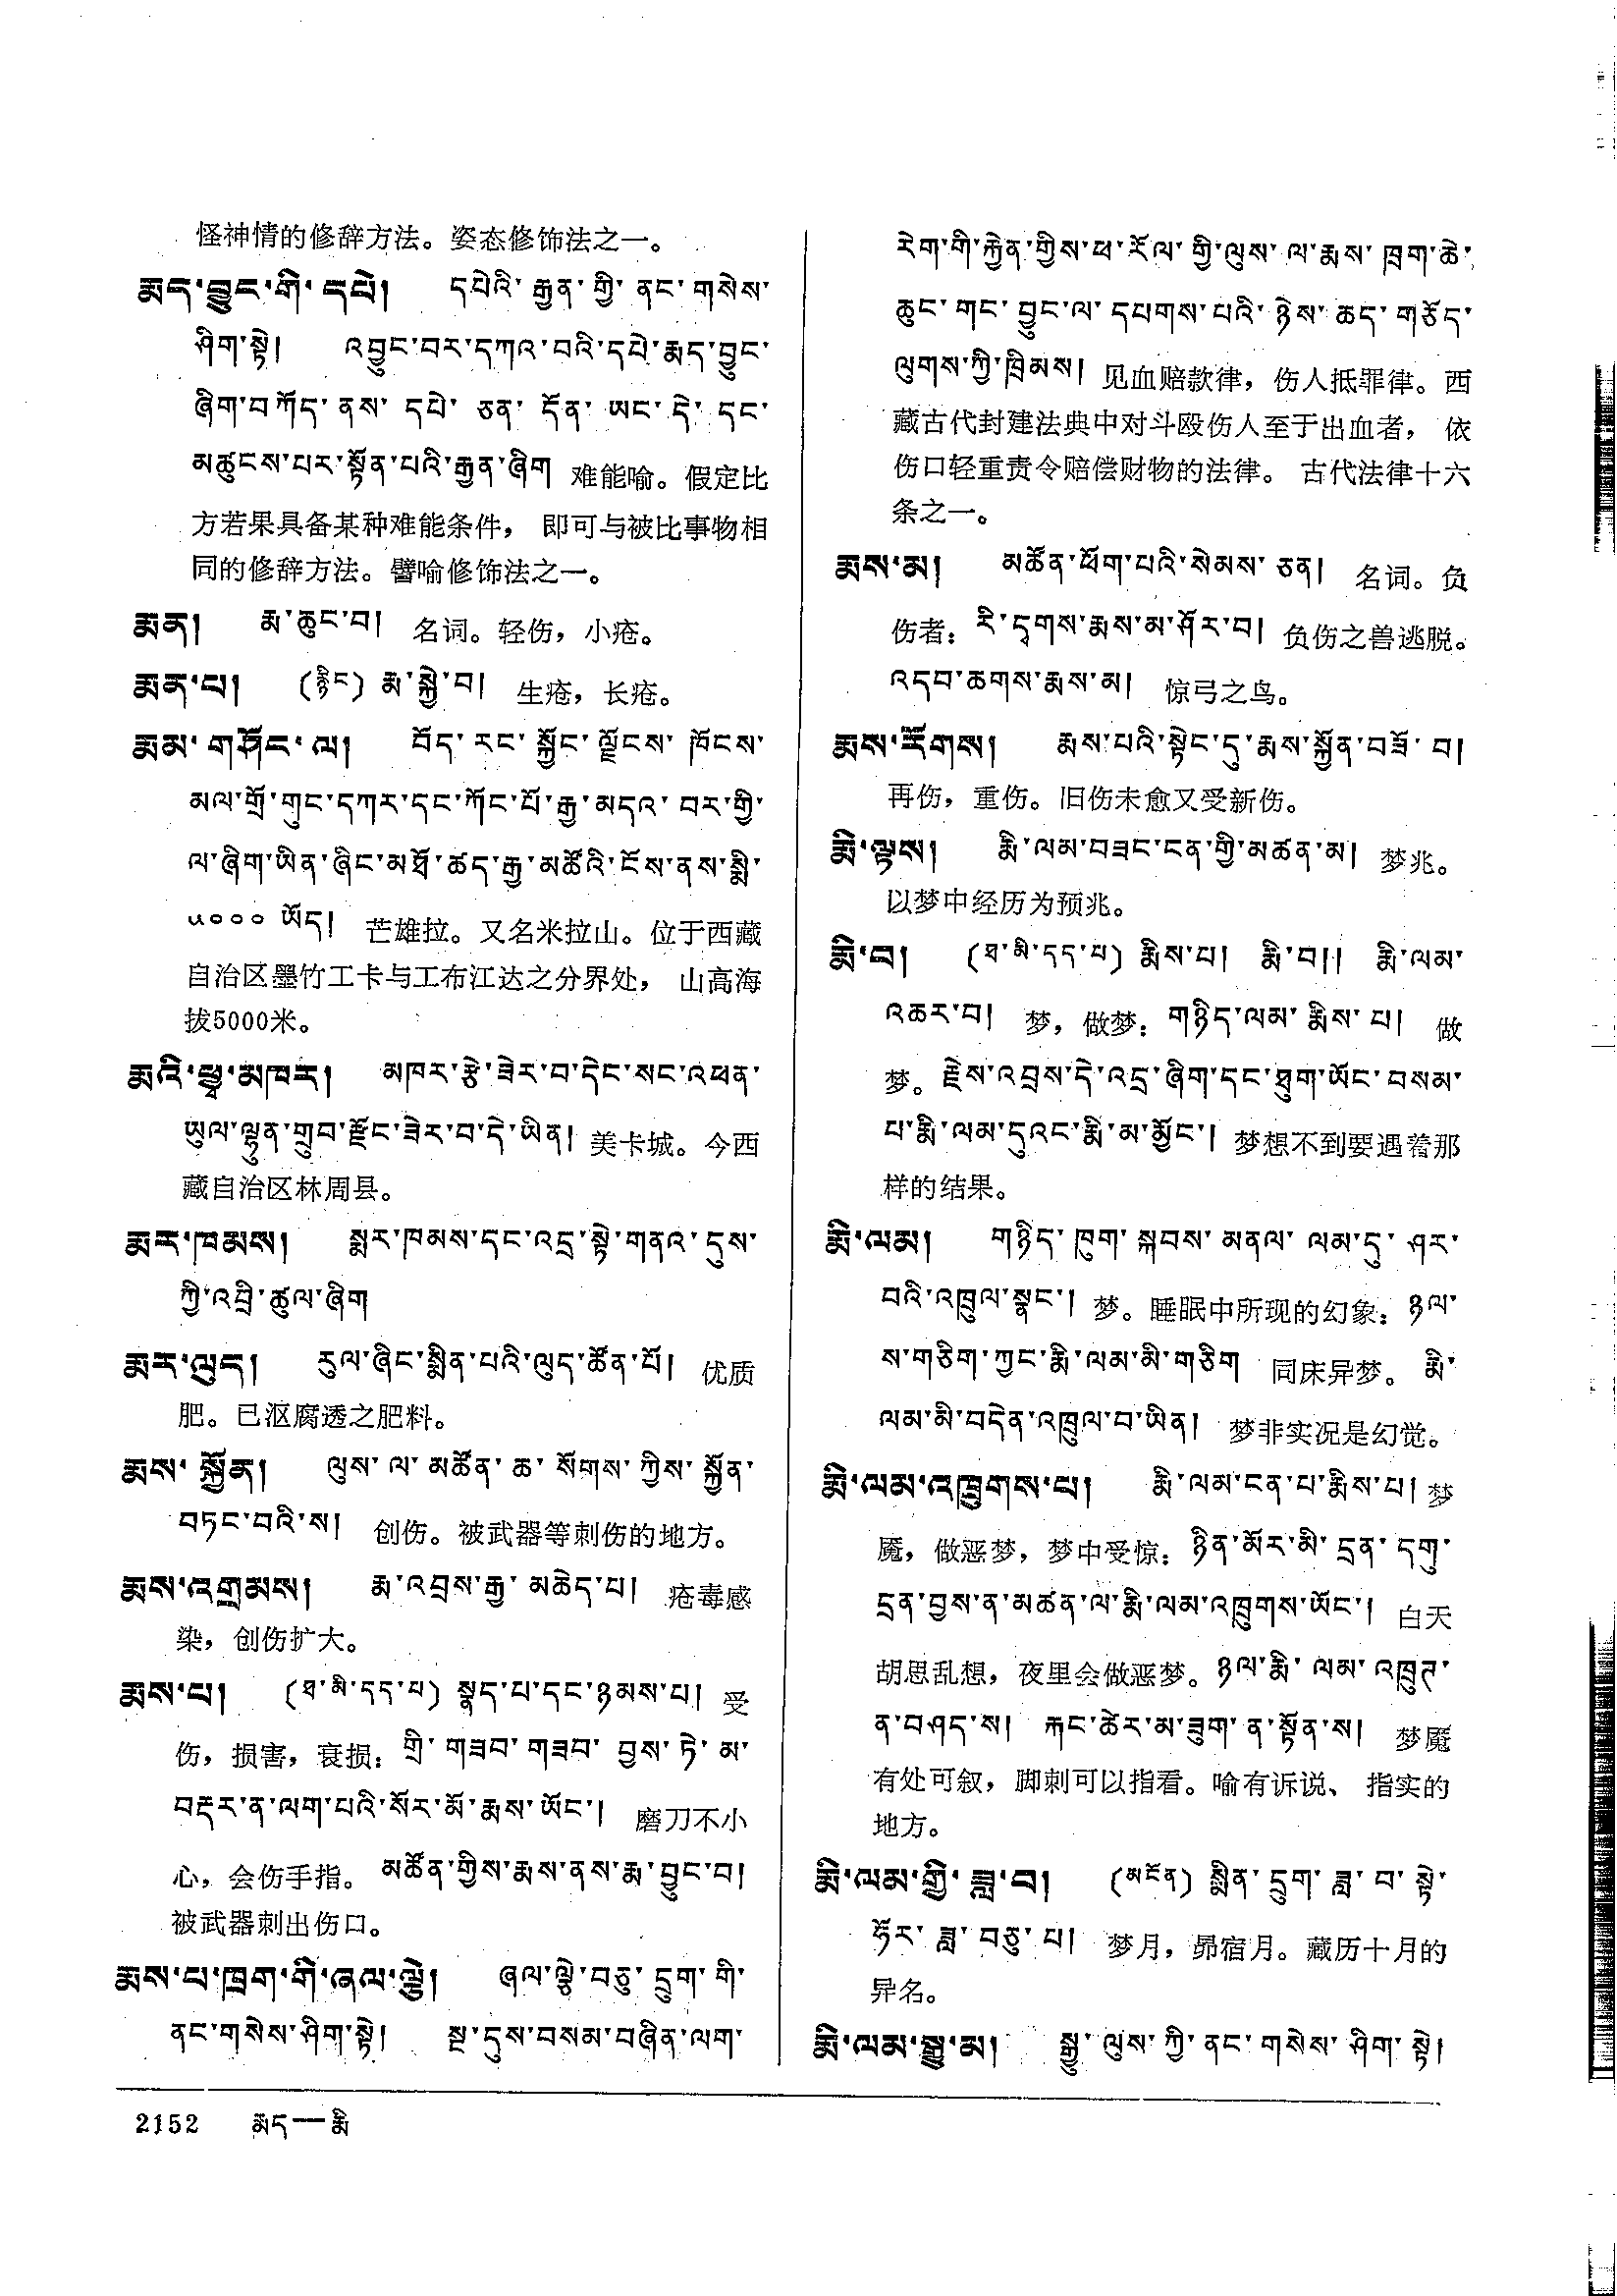 怪神情的修辞方法。姿态修饰法之一。
རྨད་བྱུང་གི་དཔེ། དཔེའི་རྒྱན་གྱི་ནང་གསེས་
ཤིག་སྟེ། འབྱུང་བར་དཀའ་བའི་དཔེ་རྨད་བྱུང་
ཞིག་བཀོད་ནས་དཔེ་ཅན་དོན་ཨང་དེ་དང་
མཚུངས་པར་སྟོན་པའི་རྒྱན་ཞིག 难能喻。假定比
方若果具备某种难能条件， 即可与被比事物相
同的修辞方法。譬喻修饰法之一。
རྨན། རྨ་ཆུང་བ། 名词。轻伤，小疮。
རྨན་པ། (རྙིང) རྨ་སྐྱེ་བ། 生疮，长疮。
རྨམ་གཤོང་ལ། བོད་རང་སྐྱོང་ལྗོངས་ཁོངས་
མལ་གྲོ་གུང་དཀར་དང་ཀོང་པོ་རྒྱ་མདའ་བར་གྱི་
ལ་ཞིག་ཡིན་ཞིང་མཐོ་ཚད་རྒྱ་མཚོའི་ངོས་ནས་སྨི་
༥༠༠༠ ཡོད། 芒雄拉。又名米拉山。位于西藏
自治区墨竹工卡与工布江达之分界处， 山高海
拔5000米。
རྨའི་ཕྱྭ་མཁར། མཁར་རྩེ་ཟེར་བ་དེང་སང་འཕན་
ཡུལ་ལྷུན་གྲུབ་རྫོང་ཟེར་བ་དེ་ཡིན། 美卡城。今西
藏自治区林周县。
རྨར་ཁམས། སྨར་ཁམས་དང་འདྲ་སྟེ་གནའ་དུས་
ཀྱི་འབྲི་ཚུལ་ཞིག
རྨར་ལུད། རུལ་ཞིང་སྨིན་པའི་ལུད་ཚོན་པོ། 优质
肥。已沤腐透之肥料。
རྨས་སྐྱོན། ལུས་ལ་མཚོན་ཆ་སོགས་ཀྱིས་སྐྱོན་
བཏང་བའི་ས། 创伤。被武器等刺伤的地方。
རྨས་འགྲམས། རྨ་འབྲས་རྒྱ་མཆེད་པ། 疮毒感
染，创伤扩大。
རྨས་པ། (ཐ་མི་དད་པ) སྣད་པ་དང་ཉམས་པ། 受
伤，损害，衰损：གྲི་གཟབ་གཟབ་བྱས་ཏེ་མ་
བརྡར་ན་ལག་པའི་སོར་མོ་རྨས་ཡོང་། 磨刀不小
心，会伤手指。མཚོན་གྱིས་རྨས་ནས་རྨ་བྱུང་བ།
被武器刺出伤口。
རྨས་པ་ཁྲག་གི་ཞལ་ལྕེ། ཞལ་ལྕེ་བཅུ་དྲུག་གི་
ནང་གསེས་ཤིག་སྟེ། སྔ་དུས་བསམ་བཞིན་ལག་
རེག་གི་རྐྱེན་གྱིས་ཕ་རོལ་གྱི་ལུས་ལ་རྨས་ཁྲག་ཆེ་
ཆུང་གང་བྱུང་ལ་དཔགས་པའི་ཉེས་ཆད་གཅོད་
ལུགས་ཀྱི་ཁྲིམས། 见血赔款律，伤人抵罪律。西
藏古代封建法典中对斗殴伤人至于出血者， 依
伤口轻重责令赔偿财物的法律。 古代法律十六
条之一。
རྨས་མ། མཚོན་ཕོག་པའི་སེམས་ཅན། 名词。负
伤者：རི་དྭགས་རྨས་མ་ཤོར་བ། 负伤之兽逃脱。
འདབ་ཆགས་རྨས་མ། 惊弓之鸟。
རྨས་རོགས། རྨས་པའི་སྟེང་དུ་རྨས་སྐྱོན་བཟོ་བ།
再伤，重伤。旧伤未愈又受新伤。
རྨི་ལྟས། རྨི་ལམ་བཟང་ངན་གྱི་མཚན་མ། 梦兆。
以梦中经历为预兆。
རྨི་བ། (ཐ་མི་དད་པ) རྨིས་པ། རྨི་བ།། རྨི་ལམ་
འཆར་བ། 梦，做梦：གཉིད་ལམ་རྨིས་པ། 做
梦。རྗེས་འབྲས་དེ་འདྲ་ཞིག་དང་ཐུག་ཡོང་བསམ་
པ་རྨི་ལམ་དུའང་རྨི་མ་མྱོང་། 梦想不到要遇着那
样的结果。
རྨི་ལམ། གཉིད་ཁུག་སྐབས་མནལ་ལམ་དུ་ཤར་
བའི་འཁྲུལ་སྣང་། 梦。睡眠中所现的幻象：ཉལ་
ས་གཅིག་ཀྱང་རྨི་ལམ་མི་གཅིག 同床异梦。 རྨི་
ལམ་མི་བདེན་འཁྲུལ་བ་ཡིན། 梦非实况是幻觉。
རྨི་ལམ་འཁྲུགས་པ། རྨི་ལམ་ངན་པ་རྨིས་པ། 梦
魇，做恶梦，梦中受惊：ཉིན་མོར་མི་དྲན་དགུ་
དྲན་བྱས་ན་མཚན་ལ་རྨི་ལམ་འཁྲུགས་ཡོང་། 白天
胡思乱想，夜里会做恶梦。ཉལ་རྨི་ལམ་འཁྲུག་
ན་བཤད་ས། རྐང་ཚེར་མ་ཟུག་ན་སྟོན་ས། 梦魇
有处可叙，脚刺可以指看。喻有诉说、 指实的
地方。
རྨི་ལམ་གྱི་ཟླ་བ། (མངོན) སྨིན་དྲུག་ཟླ་བ་སྟེ་
ཧོར་ཟླ་བཅུ་པ། 梦月，昴宿月。藏历十月的
异名。
རྨི་ལམ་སྒྱུ་མ། སྒྱུ་ལུས་ཀྱི་ནང་གསེས་ཤིག་སྟེ།
2152 རྨད—རྨི